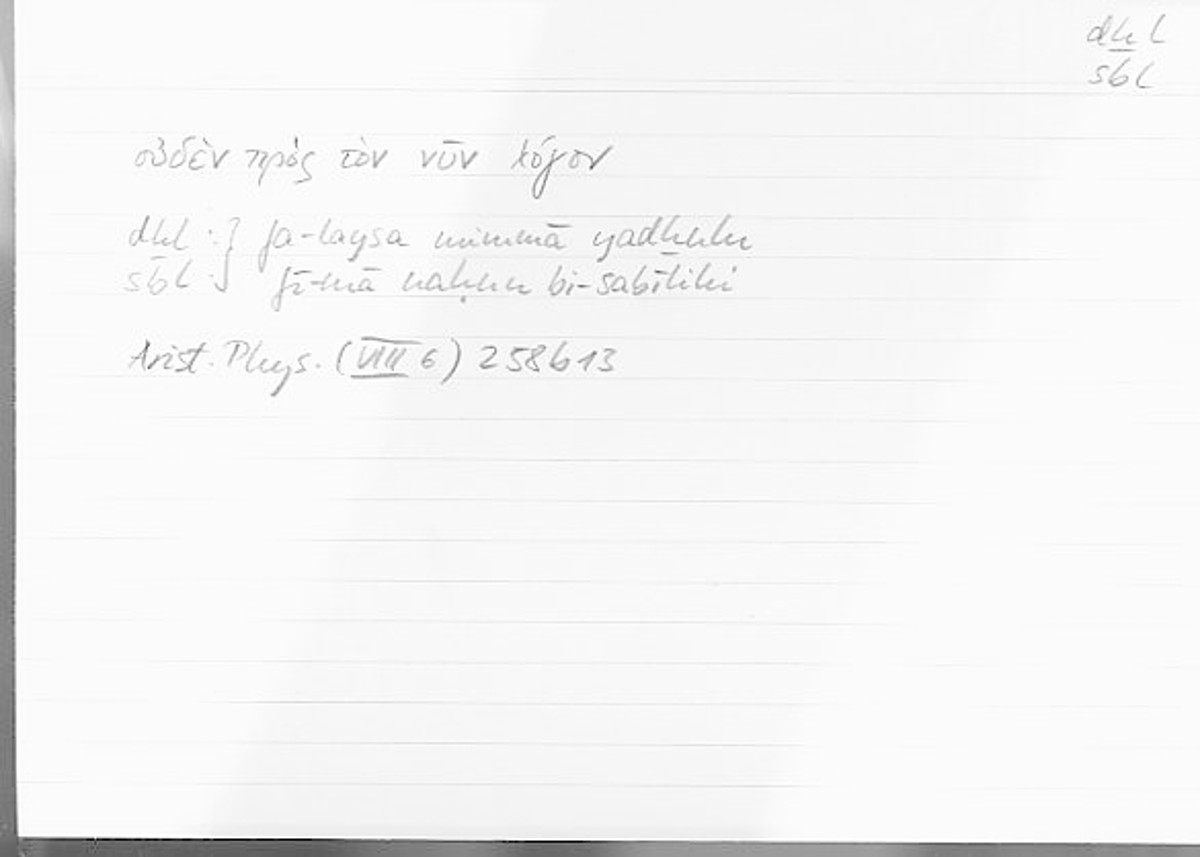 dḫl
sbl
οὐδὲν πρὸς τὸν νῦν λόγον
dḫl : } fa-laysa mimmā yadḫulu
sbl : } fī-mā naḥnu bi-sabīlihi
Arist. Phys. (VIII 6) 258b13